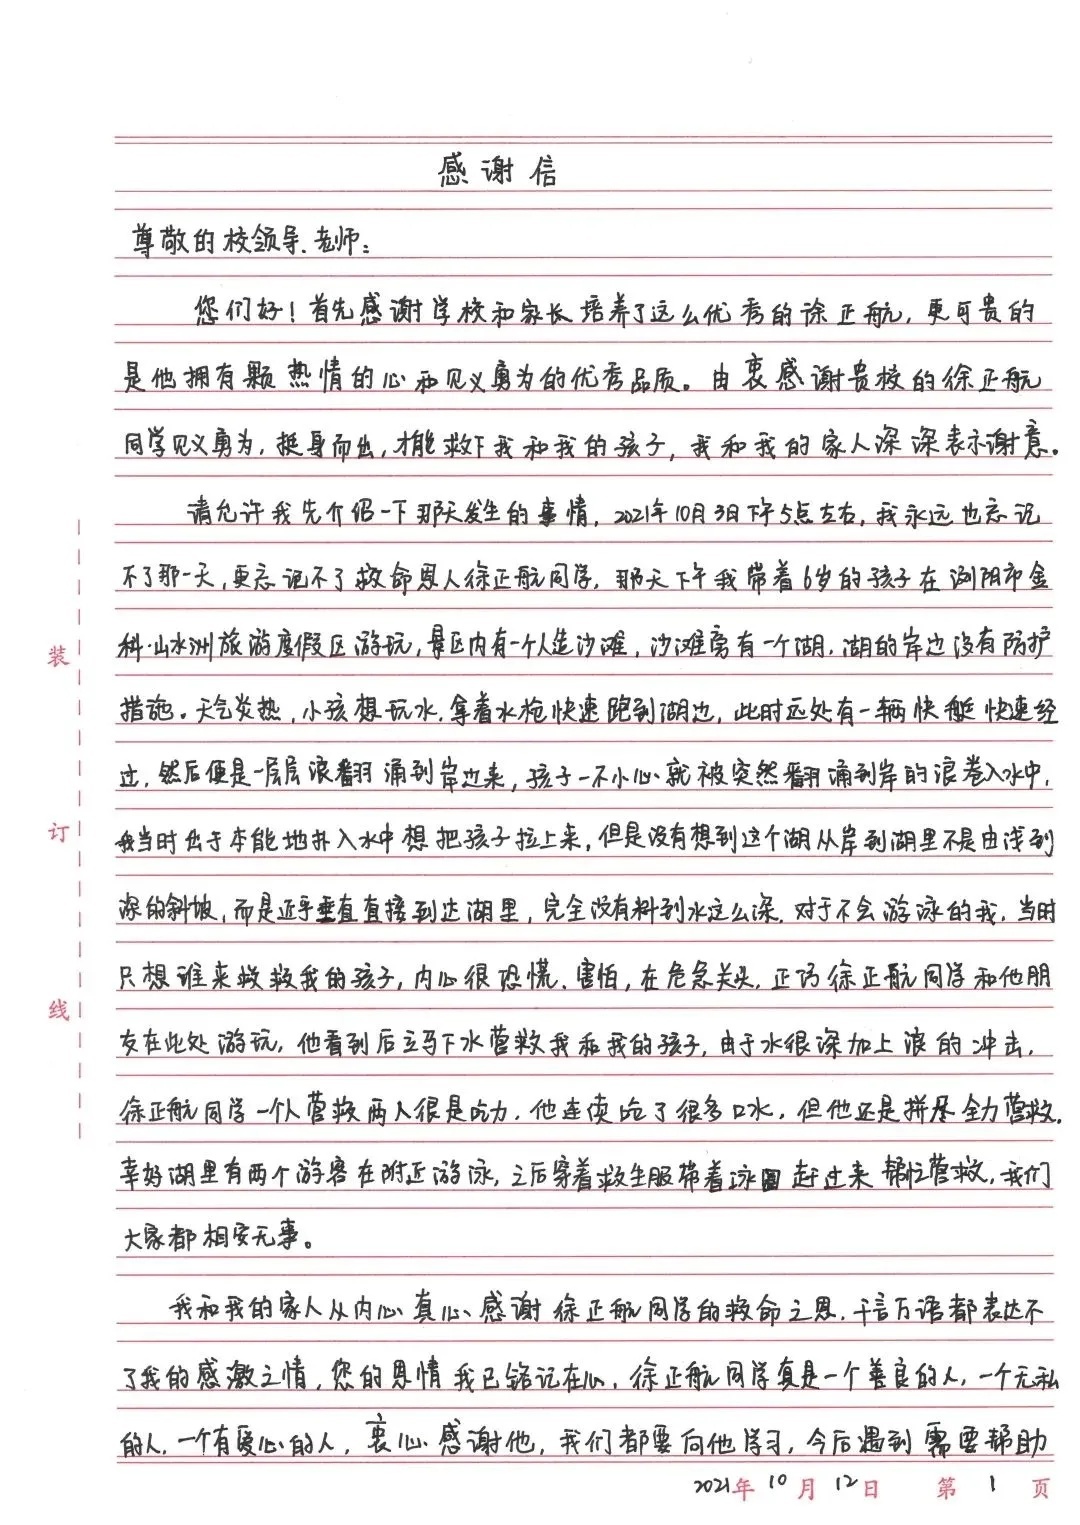 感谢信
尊敬的校领导.老师:
您们好!首先感谢学校和家长培养了这么优秀的徐正航,更可贵的
是他拥有颗热情的心和见义勇为的优秀品质。由衷感谢贵校的徐正航
同学见义勇为,挺身而出,才能救下我和我的孩子,我和我的家人深深表示谢意。
请允许我先介绍一下那天发生的事情,2021年10月3日下午5点左右,我永远也忘记
不了那一天,更忘记不了救命恩人徐正航同学,那天下午我带着6岁的孩子在浏阳市金
科·山水洲旅游度假区游玩,景区内有一个人造沙滩,沙滩旁有一个湖,湖的岸边没有防护
措施。天气炎热,小孩想玩水,拿着水枪快速跑到湖边,此时远处有一辆快艇快速经
过,然后便是一层层浪翻涌到岸边来,孩子一不小心就被突然翻涌到岸的浪卷入水中,
我当时出于本能地扑入水中想把孩子拉上来,但是没有想到这个湖从岸到湖里不是由浅到
深的斜坡,而是近乎垂直直接到达湖里,完全没有料到水这么深,对于不会游泳的我,当时
只想谁来救救我的孩子,内心很恐慌、害怕,在危急关头,正巧徐正航同学和他朋
友在此处游玩,他看到后立马下水营救我和我的孩子,由于水很深加上浪的冲击,
徐正航同学一个人营救两人很是吃力,他连续呛了很多口水,但他还是拼尽全力营救,
幸好湖里有两个游客在附近游泳,之后穿着救生服带着泳圈赶过来帮忙营救,我们
大家都相安无事。
我和我的家人从内心真心感谢徐正航同学的救命之恩,千言万语都表达不
了我的感激之情,您的恩情我已铭记在心,徐正航同学真是一个善良的人,一个无私
的人,一个有爱心的人,衷心感谢他,我们都要向他学习,今后遇到需要帮助
2021年10月12日 第1页
装
订
线